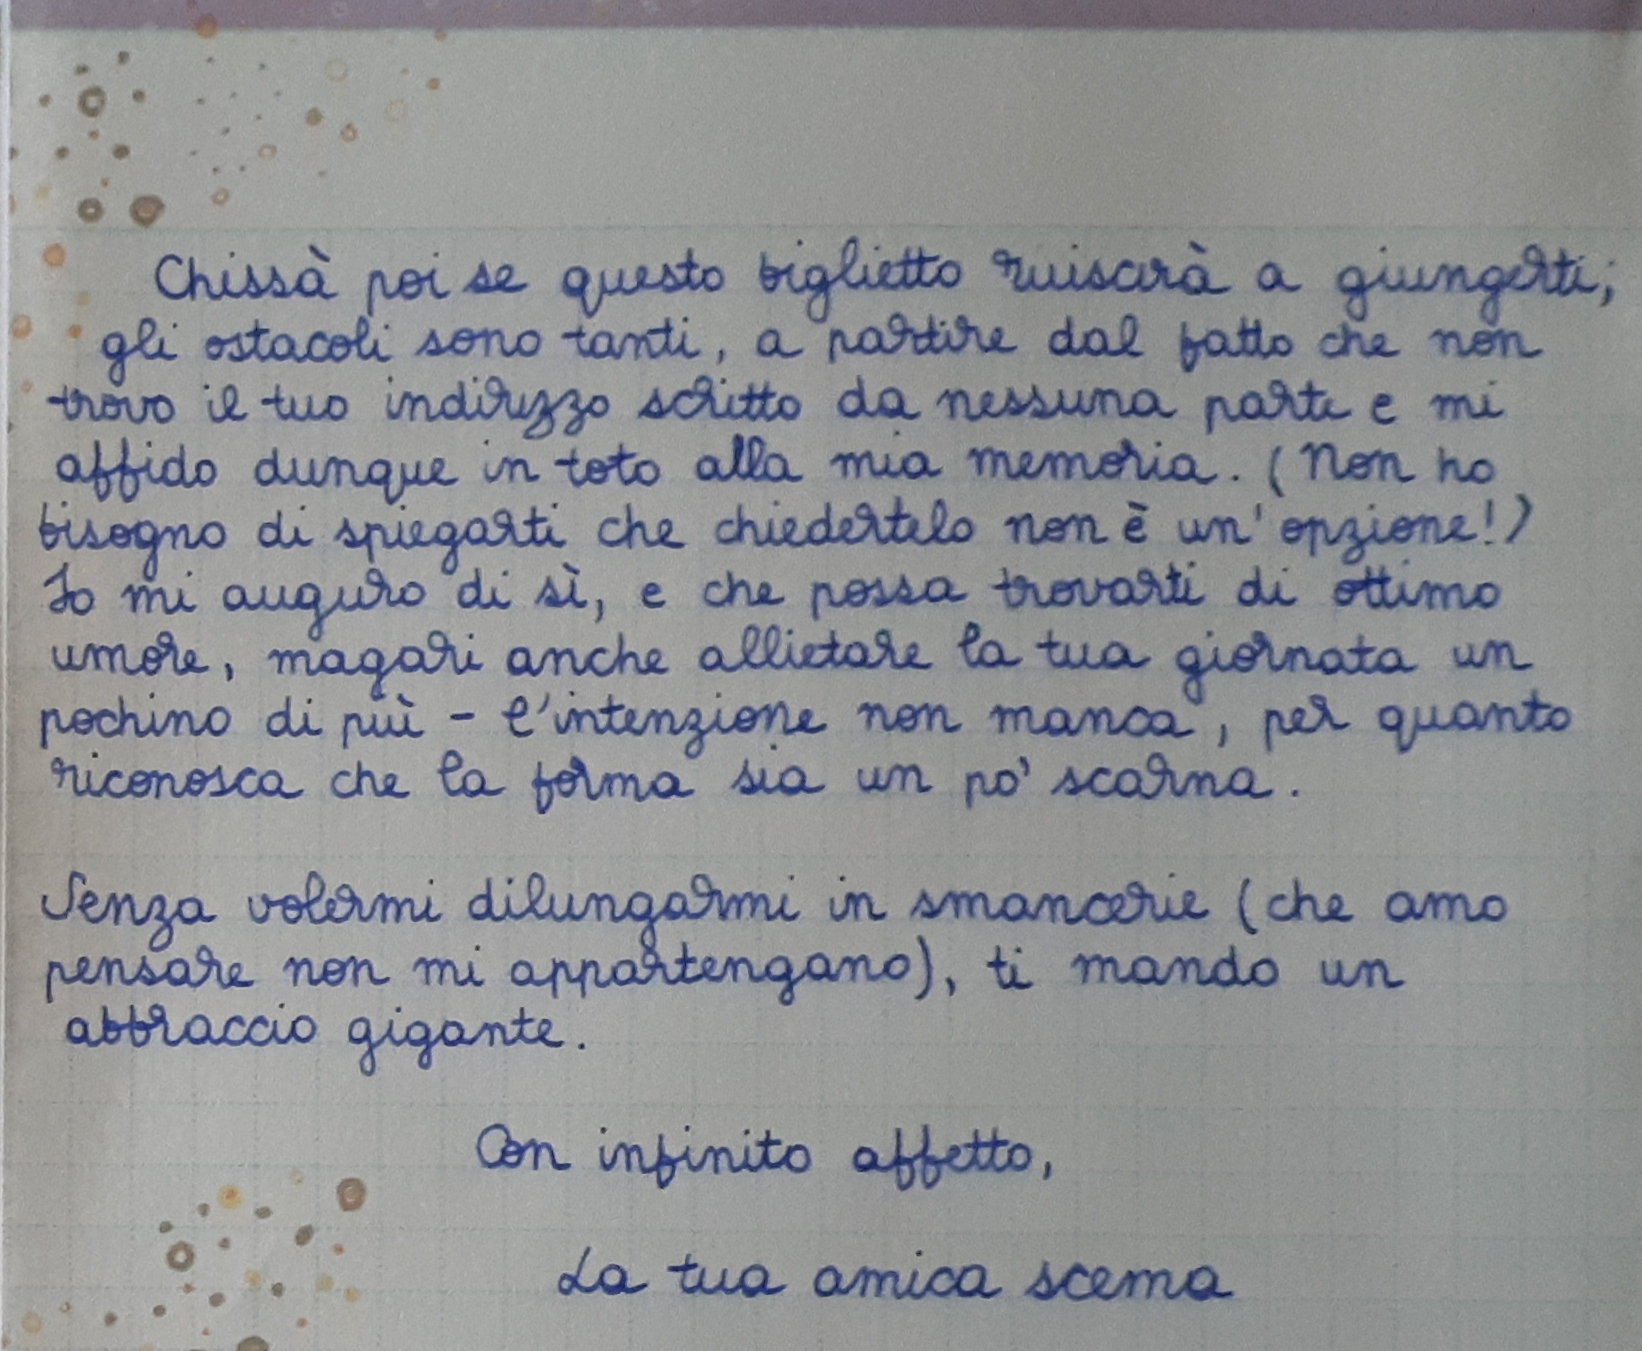 Chissà poi se questo biglietto riuscirà a giungerti;
gli ostacoli sono tanti, a partire dal fatto che non
trovo il tuo indirizzo scritto da nessuna parte e mi
affido dunque in toto alla mia memoria. (Non ho
bisogno di spiegarti che chiedertelo non è un'opzione!)
Io mi auguro di sì, e che possa trovarti di ottimo
umore, magari anche allietare la tua giornata un
pochino di più - l'intenzione non manca, per quanto
riconosca che la forma sia un po' scarna.
Senza volermi dilungarmi in smancerie (che amo
pensare non mi appartengano), ti mando un
abbraccio gigante.
Con infinito affetto,
La tua amica scema